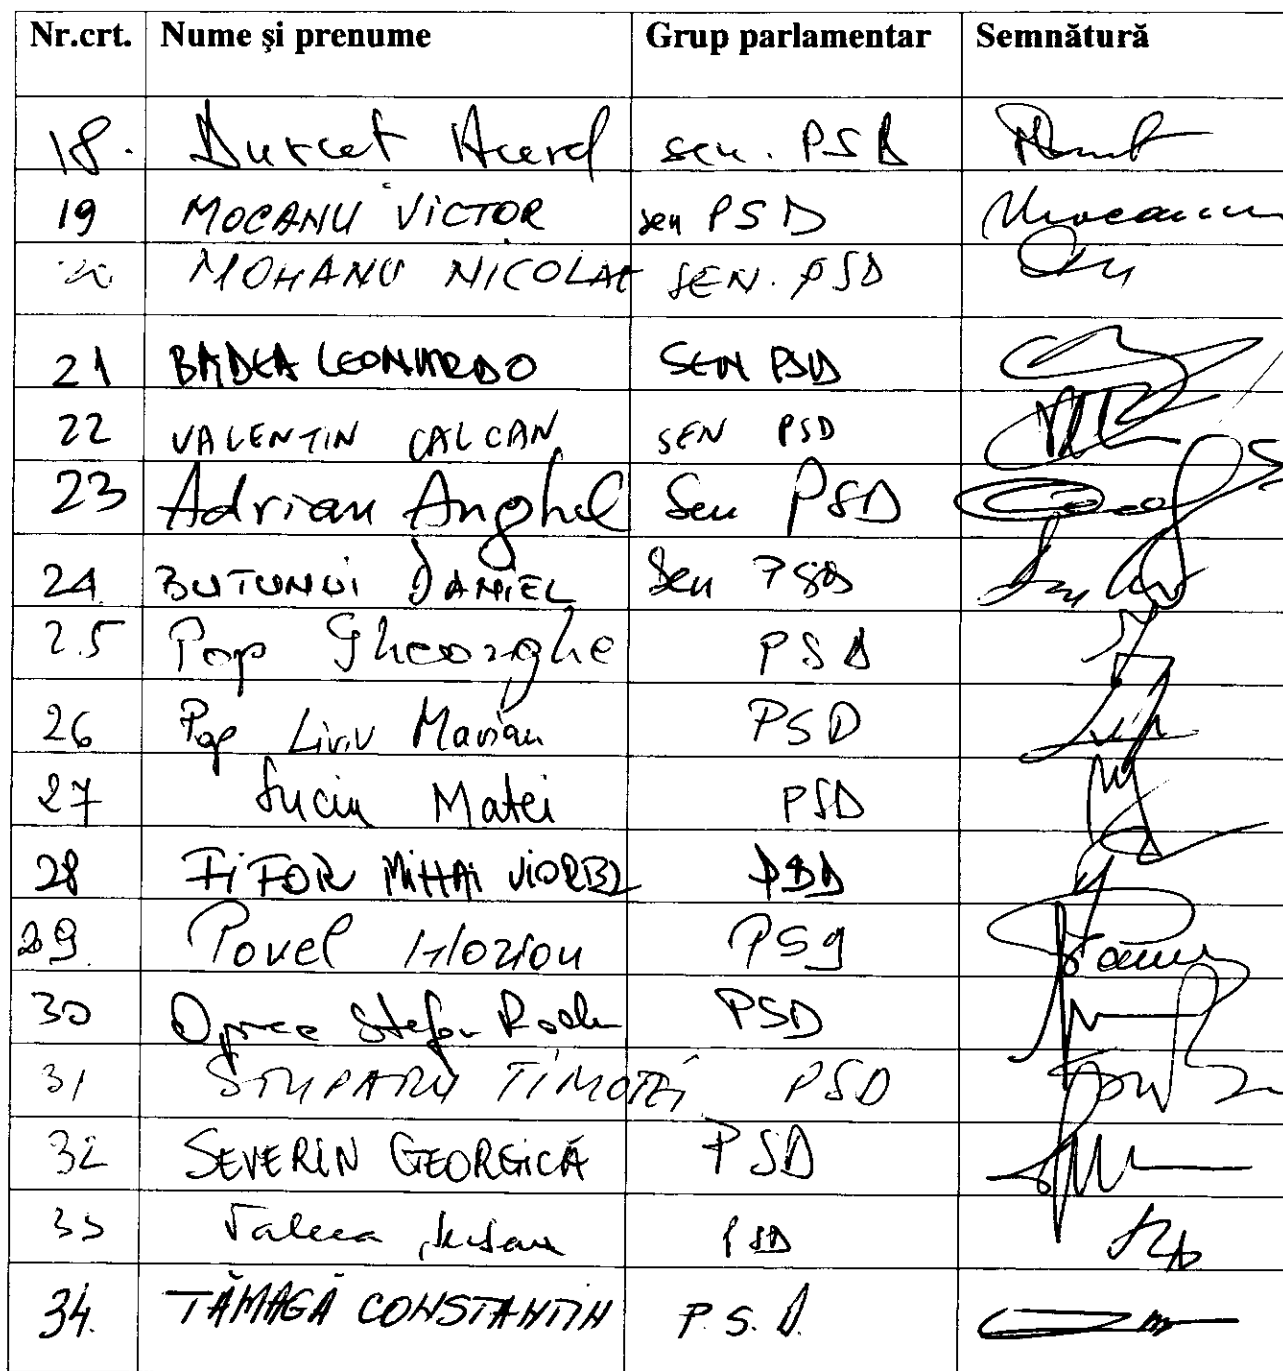 Nr.crt. Nume şi prenume Grup parlamentar Semnătură
18. Durcet Aurel sen. PSD
19 MOCANU VICTOR sen PSD Mocanu
20 MOHANU NICOLAE SEN. PSD
21 BADEA LEONARDO SEN PSD
22 VALENTIN CALCAN SEN PSD
23 Adrian Anghel Sen PSD
24 BUTUNOI DANIEL Sen PSD
25 Pop Gheorghe PSD
26 Pop Liviu Marian PSD
27 Suciu Matei PSD
28 FIFOR MIHAI VIOREL PSD
29. Povel PSD
30 Oprea Stefan Radu PSD
31 STUPARU TIMOTEI PSD
32 SEVERIN GEORGICĂ PSD
33 Valcea PSD
34. TĂMAGĂ CONSTANTIN P.S.D.